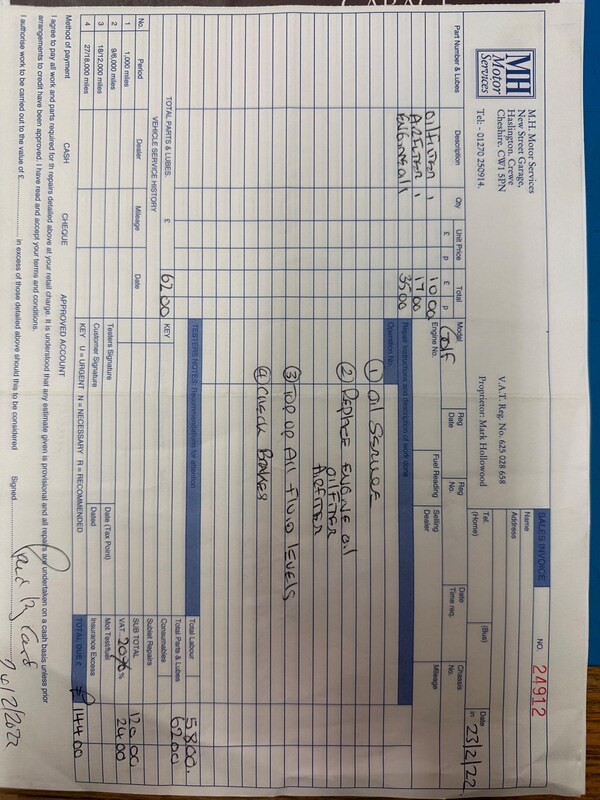 MH
Motor
Services
M.H. Motor Services
New Street Garage,
Haslington, Crewe
Cheshire. CW1 5PN
Tel:- 01270 250914.
V.A.T. Reg. No. 625 028 658
Proprietor: Mark Hollowood
SALES INVOICE
NO. 24912
Name
Address
Tel.
(Home)
(Bus)
Date
in 23/2/22
Part Number & Lubes
Description
Qty
Unit Price
£ p
Total
£ p
Model
GOLF
Engine No.
Reg
Date
Fuel Reading
Reg
No.
Selling
Dealer
Date
Time req.
Chassis
No.
Mileage
OilFilter 1 10.00
AirFilter 1 17.00
Engine oil 35.00
Operation No.
Repair instructions and description of work done
① oil Service
② Replace ENGINE oil
oilFilter
AirFilter
③ Top up All Fluid levels
④ Check Brakes
TOTAL PARTS & LUBES. £ 62 00
KEY
TESTERS NOTES: Recommendations for attention
Total Labour 58.00.
Total Parts & Lubes 62.00
Consumables
Sublet Repairs
SUB TOTAL 120.00
VAT 20% % 24.00
Mot Test/fuel
Insurance Excess
TOTAL DUE £ £144.00
VEHICLE SERVICE HISTORY
No. Period Dealer Mileage Date
1 1,000 miles
2 9/6,000 miles
3 18/12,000 miles
4 27/18,000 miles
Testers Signature
Date (Tax Point)
Customer Signature
Dated
KEY U = URGENT N = NECESSARY R = RECOMMENDED
Method of payment CASH CHEQUE APPROVED ACCOUNT
I agree to pay all work and parts required for th repairs detailed above at your retail charge. It is understood that any estimate given is provisional and all repairs are undertaken on a cash basis unless prior
arrangements to credit have been approved. I have read and accept your terms and conditions.
I authorise work to be carried out to the value of £ in excess of those detailed above should this to be considered Signed
Paid by Card
24/2/2022